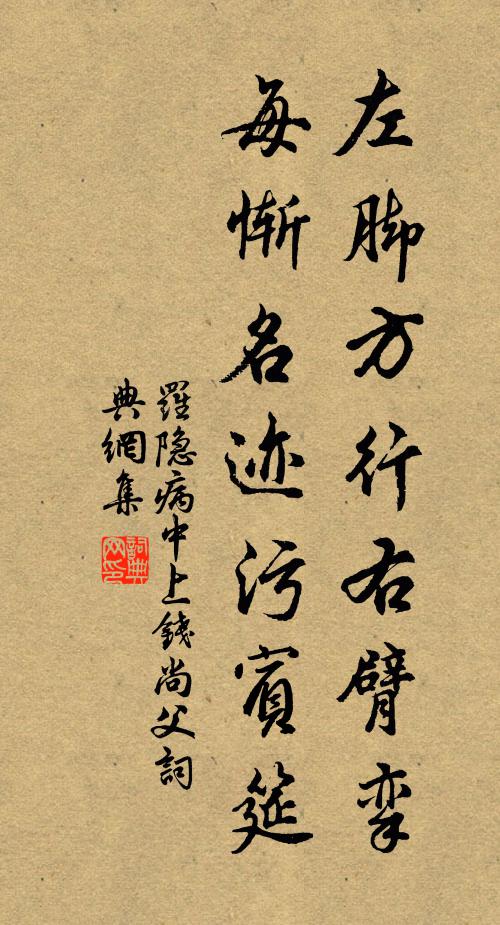 左脚方行右臂挛
每惭名迹污宾筵
羅隐病中上錢尚父詞
典網集
詞典网印